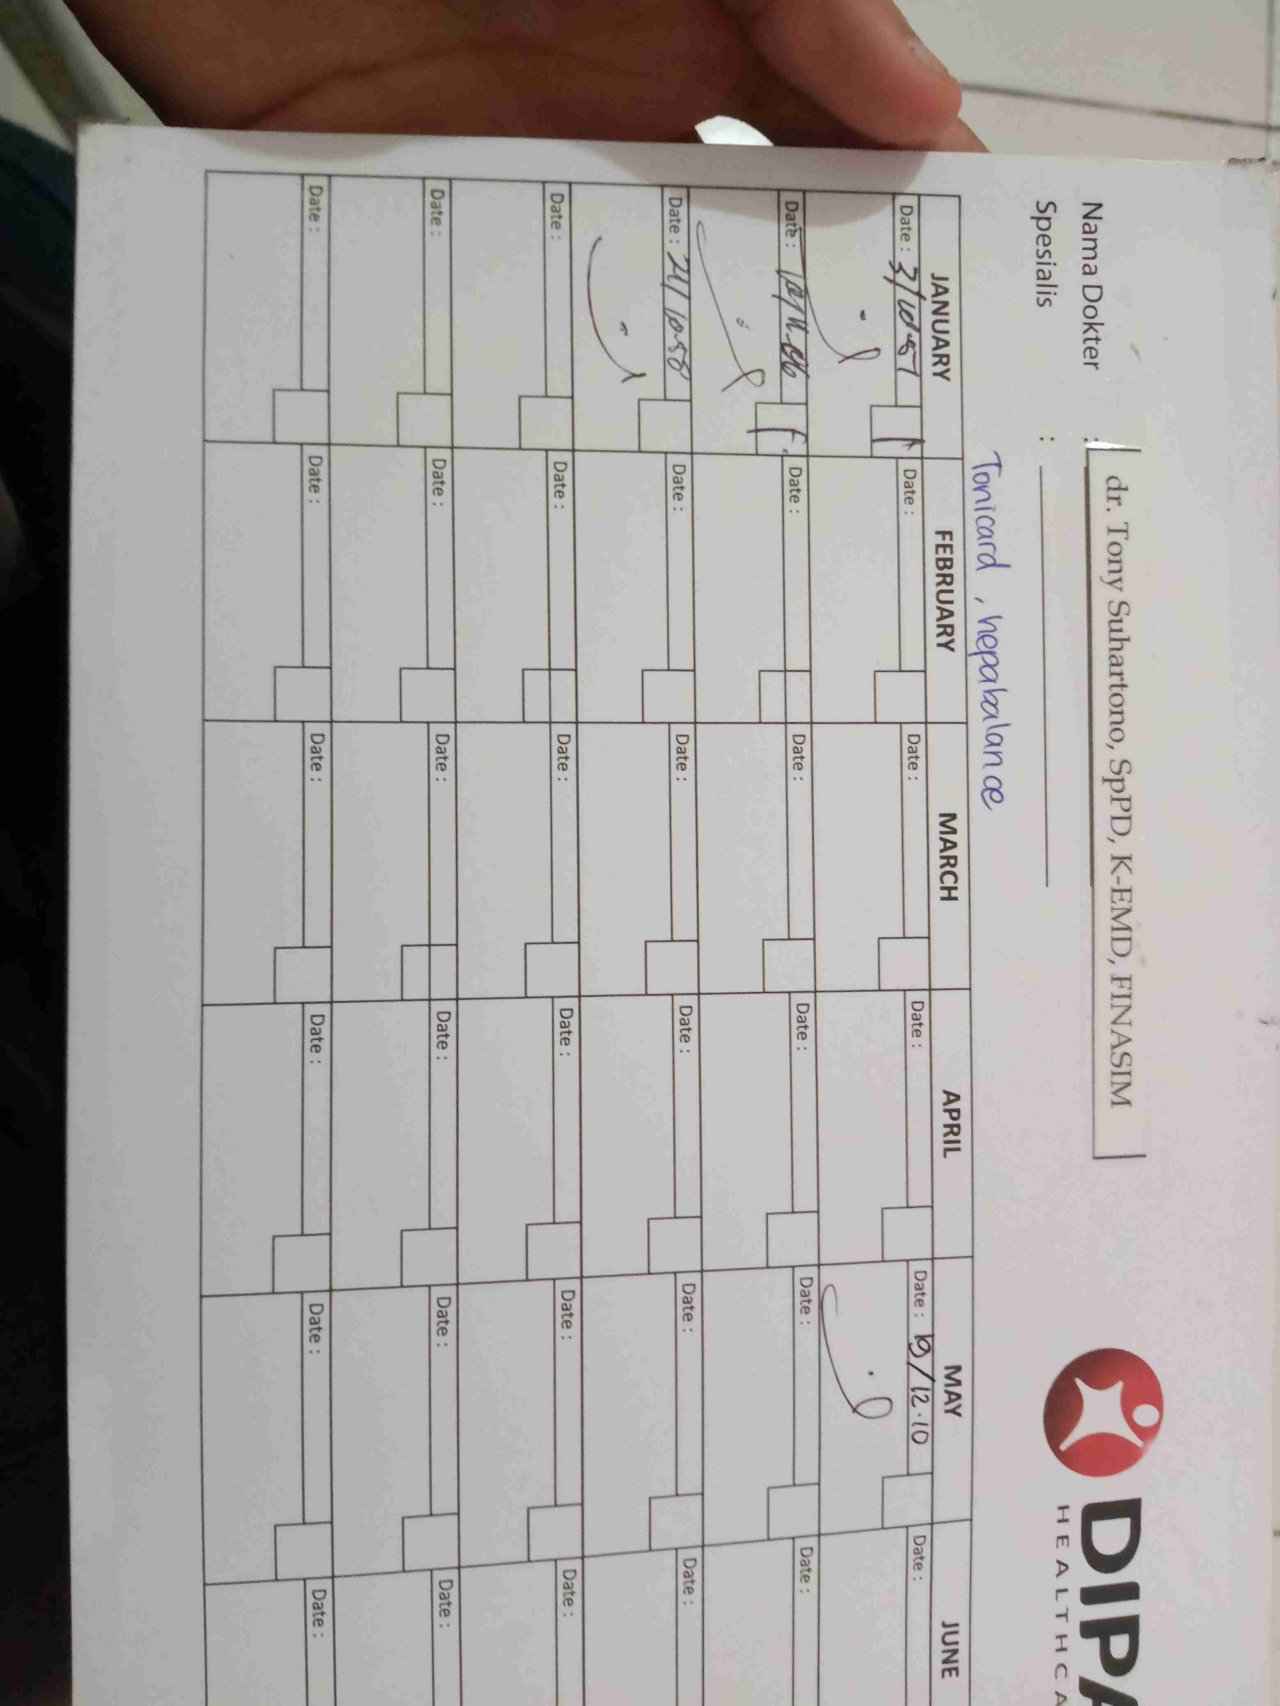 Nama Dokter : dr. Tony Suhartono, SpPD, K-EMD, FINASIM
Spesialis :
DIPA
HEALTHCA
Tonicard, hepabalance
JANUARY FEBRUARY MARCH APRIL MAY JUNE
Date : 3/10.57 Date : Date : Date : Date : 19/12.10 Date :
Date : Date : Date : Date : Date : Date :
Date : 24/10.58 Date : Date : Date : Date : Date :
Date : Date : Date : Date : Date : Date :
Date : Date : Date : Date : Date : Date :
Date : Date : Date : Date : Date : Date :